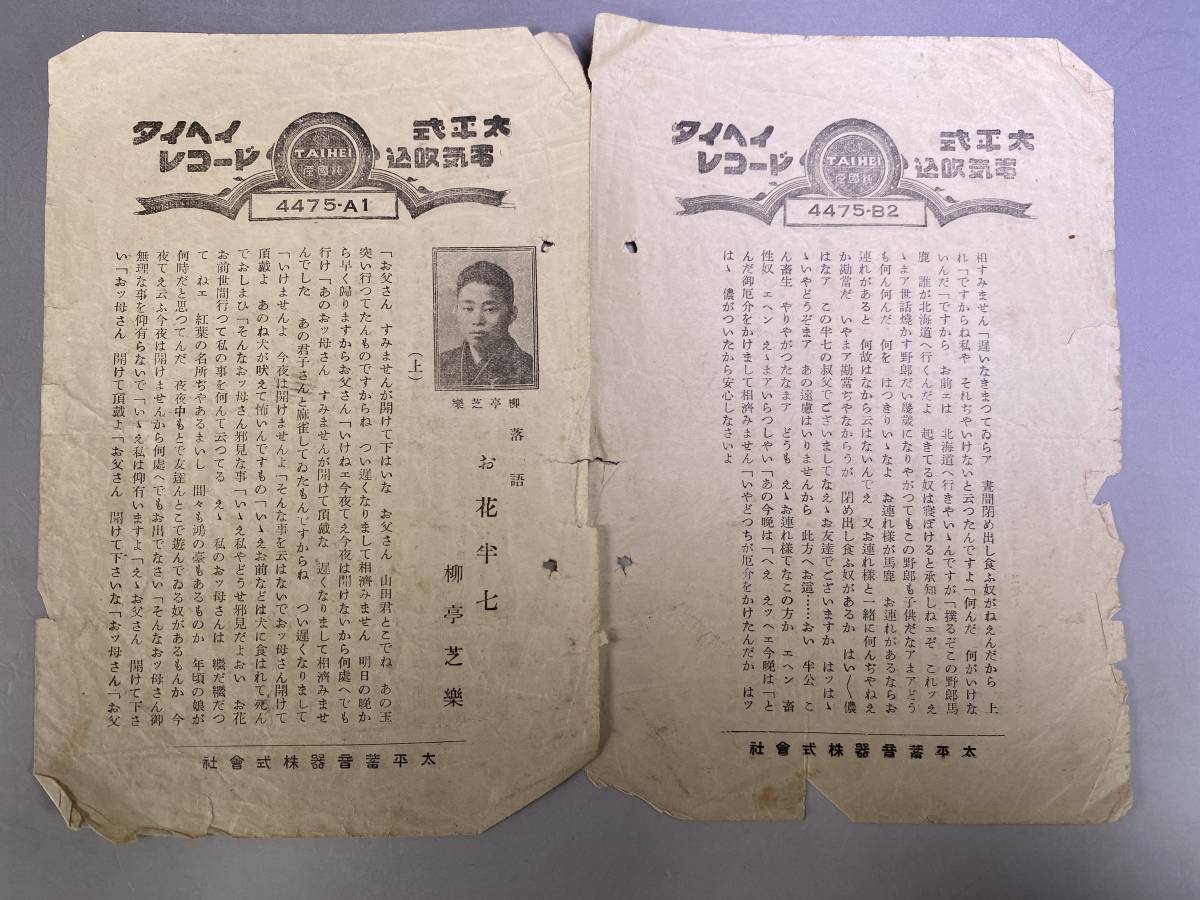 タイヘイ
レコード
太平式
電気吹込
TAIHEI
純國産
4475-A1
落語
お花半七
柳亭芝樂
柳亭芝樂
(上)
「お父さん すみませんが開けて下はいな お父さん 山田君とこでね あの玉
突い行つてたんものですからね つい遲くなりまして相濟みません 明日の晩か
ら早く歸りますからお父さん「いけねェ今夜てえ今夜は開けないから何處へでも
行け「あのおッ母さん すみませんが開けて頂戴な 遲くなりまして相濟みませ
んでした あの君子さんと麻雀してゐたもんですからね つい遲くなりまして
「いけませんよ 今夜は開けませんよ「そんな事を云はないでおッ母さん開けて
頂戴よ あのね犬が吠えて怖いんですもの「いゝえお前などは犬に食はれて死ん
でおしまひ「そんなおッ母さん邪見な事「いゝえ私やどうせ邪見だよおい お花
お前世間行つて私の事を何んて云つてる えゝ 私のおッ母さんは 繼だ繼だつ
て ねェ 紅葉の名所ぢやあるまいし 間々も鴻の臺もあるものか 年頃の娘が
何時だと思つてんだ 夜夜中もとで友達んとこで遊んでゐる奴があるもんか 今
夜てえ云ふ今夜は開けませんから何處へでもお出でなさい「そんなおッ母さん御
無理な事を仰有らないで「いゝえ私は仰有いますよ「えゝお父さん 開けて下さ
い「おッ母さん 開けて頂戴よ「お父さん 開けて下さいな「おッ母さん「お父
太平蓄音器株式會社
タイヘイ
レコード
太平式
電気吹込
TAIHEI
純國産
4475-B2
相すみません「遲いなきまつてゐらア 晝間閉め出し食ふ奴がねえんだから 上
れ「ですからね私や それぢやいけないと云つたんですよ「何んだ 何がいけな
いんだ「ですから お前ェは 北海道へ行きやいゝんですが「撲るぞこの野郎馬
鹿 誰が北海道へ行くんだよ 起きてる奴は寢ぼけると承知しねェぞ これッえ
ゝまア世話燒かす野郎だい幾歳になりやがつてもこの野郎も子供だなアまアどう
も何ん何んだ 何を はつきりいゝなよ お連れ様が馬鹿 お連れがあるならお
連れがあると 何故はなから云はないんでえ 又お連れ様と一緒に何んぢやねえ
か勘當だ いやまア勘當ぢやなからうが 閉め出し食ふ奴があるか はい〳〵儂
はなア この半七の叔父でございましてなえゝお友達でございますか はッはゝ
ゝいやどうぞまア あの遠慮はいりませんから 此方へお這……おい 半公 こ
ん畜生 やりやがつたなまア どうも えゝお連れ様てなこの方か エヘン 畜
性奴 エヘン えゝまアいらつしやい「あの今晩は「へえ えッヘェ今晩は「と
んだ御厄介をかけまして相濟みません「いやどつちが厄介をかけたんだか はッ
はゝ 儂がついたから安心しなさいよ
太平蓄音器株式會社